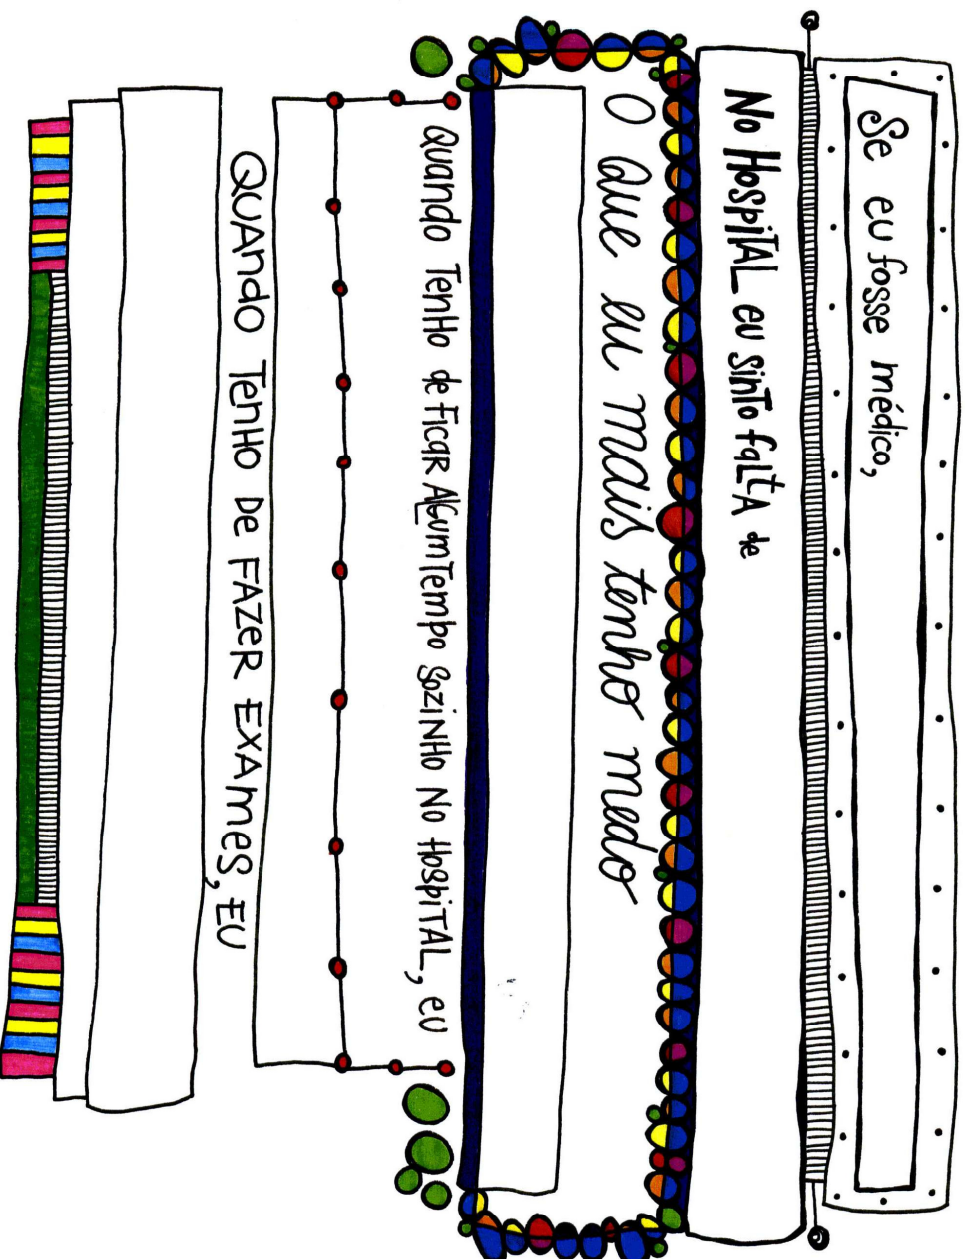 Se eu fosse médico,
No HOSPITAL eu SiNTo fALtA de
O que eu mais tenho medo
QUANDO TENHO de FICAR ALGUM TEMPO SOZINHO NO HOSPITAL, eu
QUANDO TENHO DE FAZER EXAMES, EU